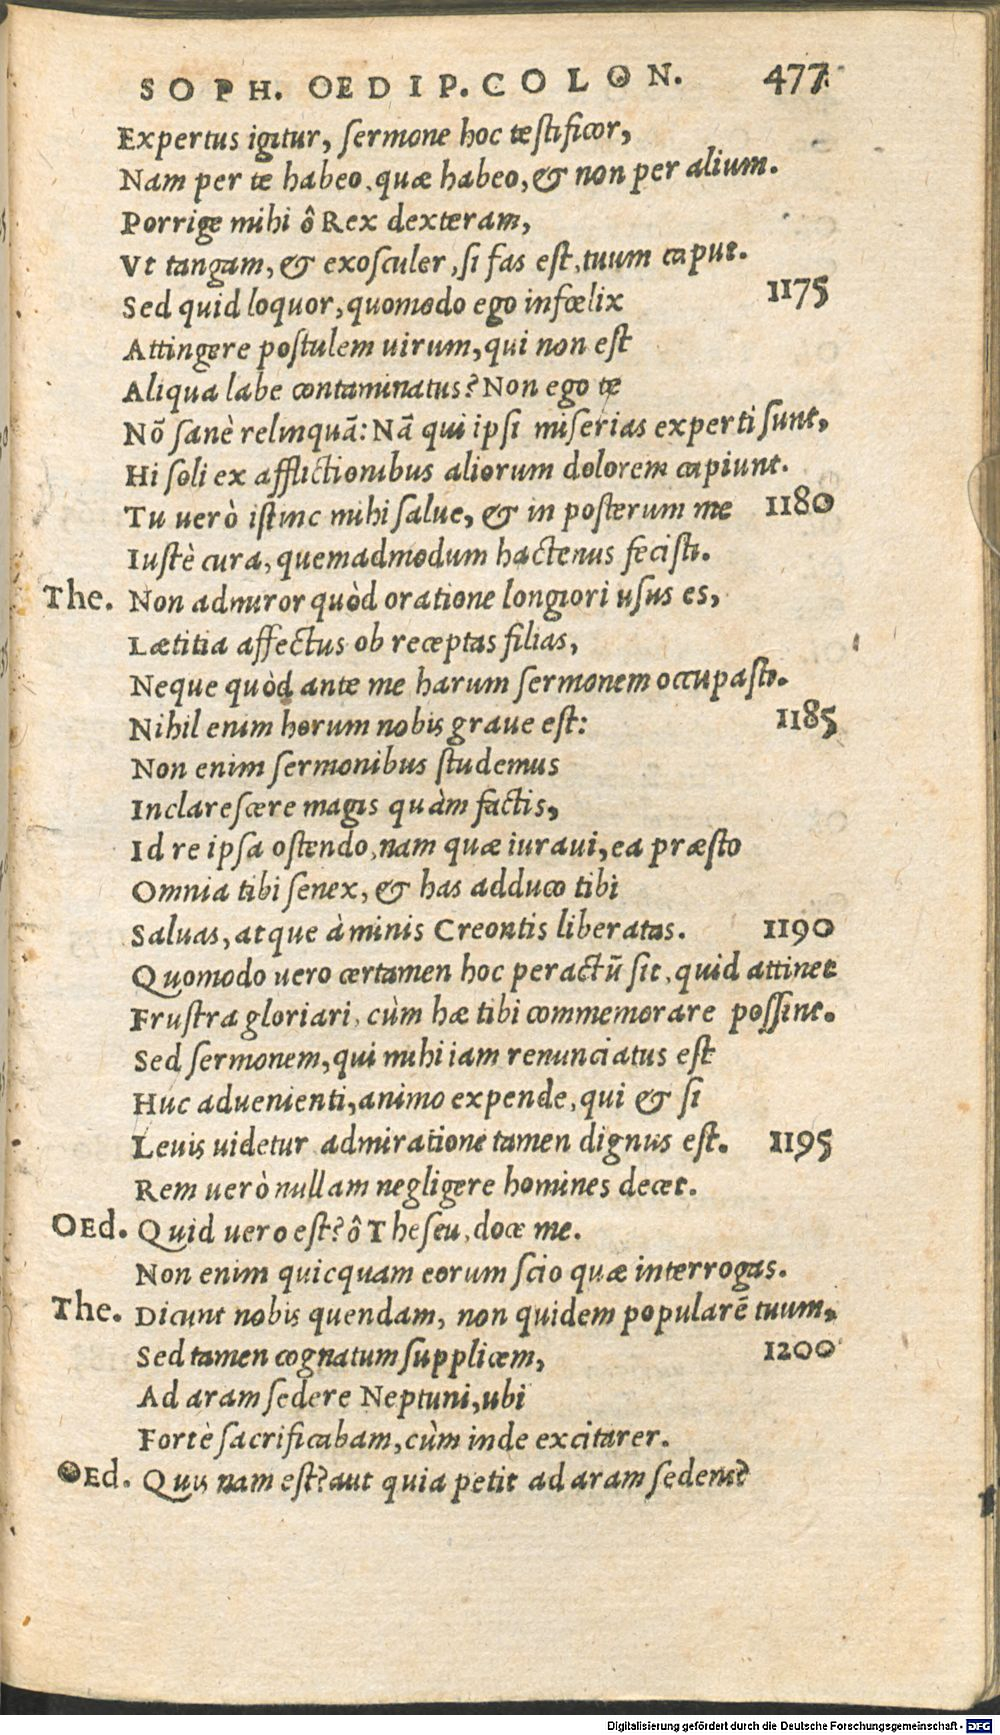 SOPH. OEDIP. COLON. 477
Expertus igitur, sermone hoc testificor,
Nam per te habeo, quæ habeo, & non per alium.
Porrige mihi ô Rex dexteram,
Vt tangam, & exosculer, si fas est, tuum caput.
Sed quid loquor, quomodo ego infœlix 1175
Attingere postulem uirum, qui non est
Aliqua labe contaminatus? Non ego te
Nõ sanè relinquã: Nã qui ipsi miserias experti sunt,
Hi soli ex afflictionibus aliorum dolorem capiunt.
Tu uerò istinc mihi salue, & in posterum me 1180
Iustè cura, quemadmodum hactenus fecisti.
The. Non admiror quòd oratione longiori usus es,
Lætitia affectus ob receptas filias,
Neque quòd ante me harum sermonem occupasti.
Nihil enim horum nobis graue est: 1185
Non enim sermonibus studemus
Inclarescere magis quàm factis,
Id re ipsa ostendo, nam quæ iuraui, ea præsto
Omnia tibi senex, & has adduco tibi
Saluas, atque à minis Creontis liberatas. 1190
Quomodo uero certamen hoc peractũ sit, quid attinet
Frustra gloriari, cùm hæ tibi commemorare possint.
Sed sermonem, qui mihi iam renunciatus est
Huc aduenienti, animo expende, qui & si
Leuis uidetur admiratione tamen dignus est. 1195
Rem uerò nullam negligere homines decet.
OEd. Quid uero est? ô Theseu, doce me.
Non enim quicquam eorum scio quæ interrogas.
The. Dicunt nobis quendam, non quidem popularẽ tuum,
Sed tamen cognatum supplicem, 1200
Ad aram sedere Neptuni, ubi
Fortè sacrificabam, cùm inde excitarer.
OEd. Quis nam est? aut quia petit ad aram sedens?
Digitalisierung gefördert durch die Deutsche Forschungsgemeinschaft - DFG